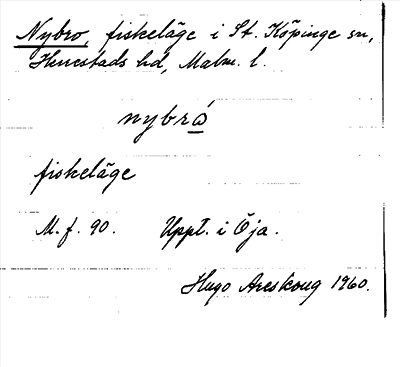 Nybro, fiskeläge i St. Köpinge sn,
Herrestads hd, Malm. l.
nybrå
fiskeläge
M. f. 90. Uppt. i Öja.
Hugo Areskoug 1960.